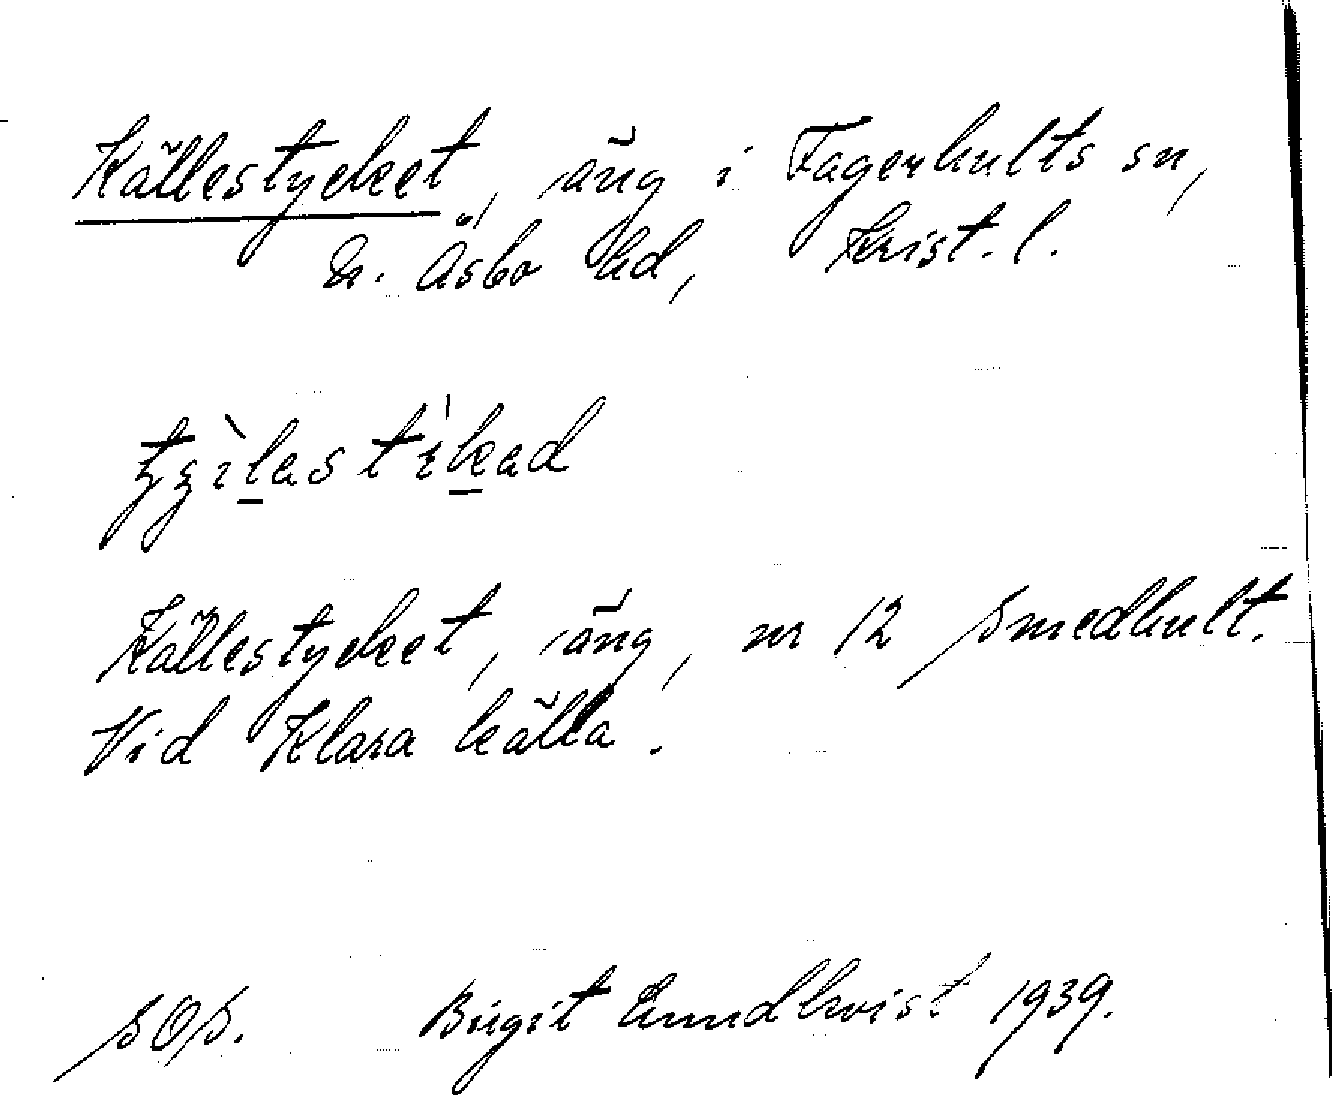 Källestycket, äng i Fagerhults sn,
N. Åsbo hd, Krist. l.
Källestycket, äng, nr 12 Smedhult.
Vid Klara källa.
SOS. Birgit Lundkvist 1939.